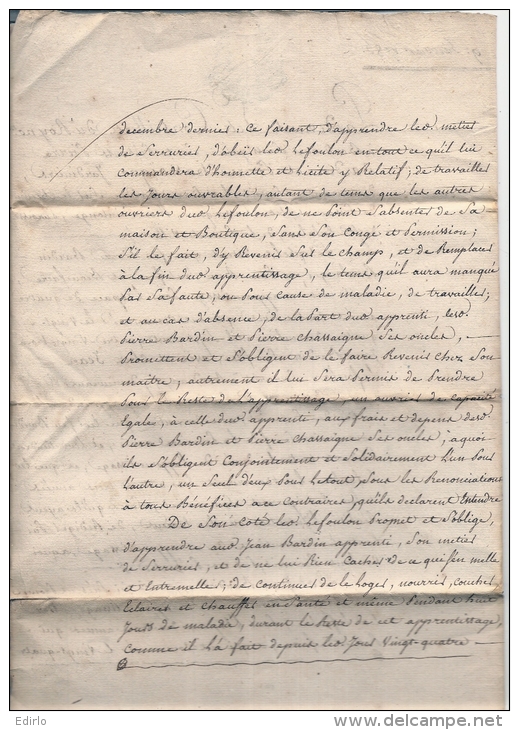 decembre dernier : ce faisant, d'apprendre led. metier
de Serrurier, d'obeir led. Lefoulon en tout ce qu'il lui
Commandera d'honnette et Licite y Relatif ; de travailler
les Jours ouvrables, autant de tems que les autres
ouvriers dud. Lefoulon, de ne Point S'absenter de Sa
maison et Boutique, Sans Son Congé et Permission ;
S'il le fait, d'y Revenir Sur le Champ, et de Remplacer
à la fin dud. apprentissage, le tems qu'il aura manqué
Par Sa faute, ou Pour cause de maladie, de travailler ;
et au cas d'absence, de la Part dud. apprenti, lesd.
Pierre Bardin et Pierre Chassaigne Ses oncles,
Promettent et S'obligent de le faire Revenir Chez Son
maitre, autrement il lui Sera Permis de Prendre
Pour le Reste de L'apprentissage, un ouvrier de Capacité
Egale, à celle dud. apprenti, aux frais et depens desd.
Pierre Bardin et Pierre Chassaigne Ses oncles ; a quoi
ils S'obligent Conjointement et Solidairement L'un Pour
L'autre, un Seul d'eux Pour Le tout, Sous les Renonciations
à tous Bénéfices a ce Contraires, qu'ils declarent Entendre
De Son Coté led. Lefoulon Promet et S'oblige,
d'apprendre aud. Jean Bardin apprenti, Son metier
de Serrurier, et de ne lui Rien Cacher de ce qui S'en melle
et Entremelle ; de Continuer de le loger, nourrir, Coucher,
Eclairer et Chauffer en Santé et meme Pendant huit
Jours de maladie, durant le Reste de cet apprentissage,
Comme il L'a fait depuis led. Jour Vingt-quatre
Edirlo
delcampe.net